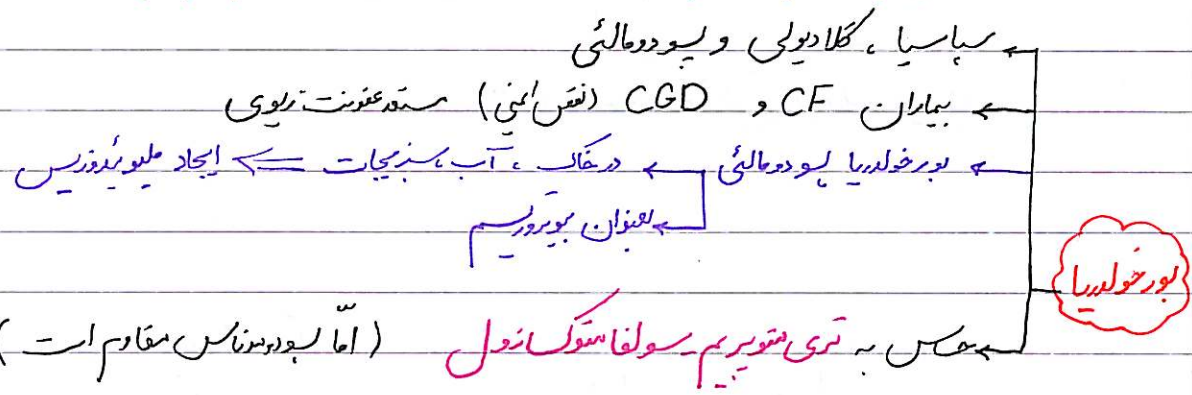 سپاسیا ، گلادیولی و پسودومالئی
بیماران CF و CGD (نقص ایمنی) مستعد عفونت ریوی
بورخولدریا پسودومالئی ← در خاک ، آب ، سبزیجات ⇐ ایجاد ملیوئیدوزیس
بعنوان بیوتروریسم
بورخولدریا
حساس به تری متوپریم - سولفامتوکسازول (امّا پسودوموناس مقاوم است)